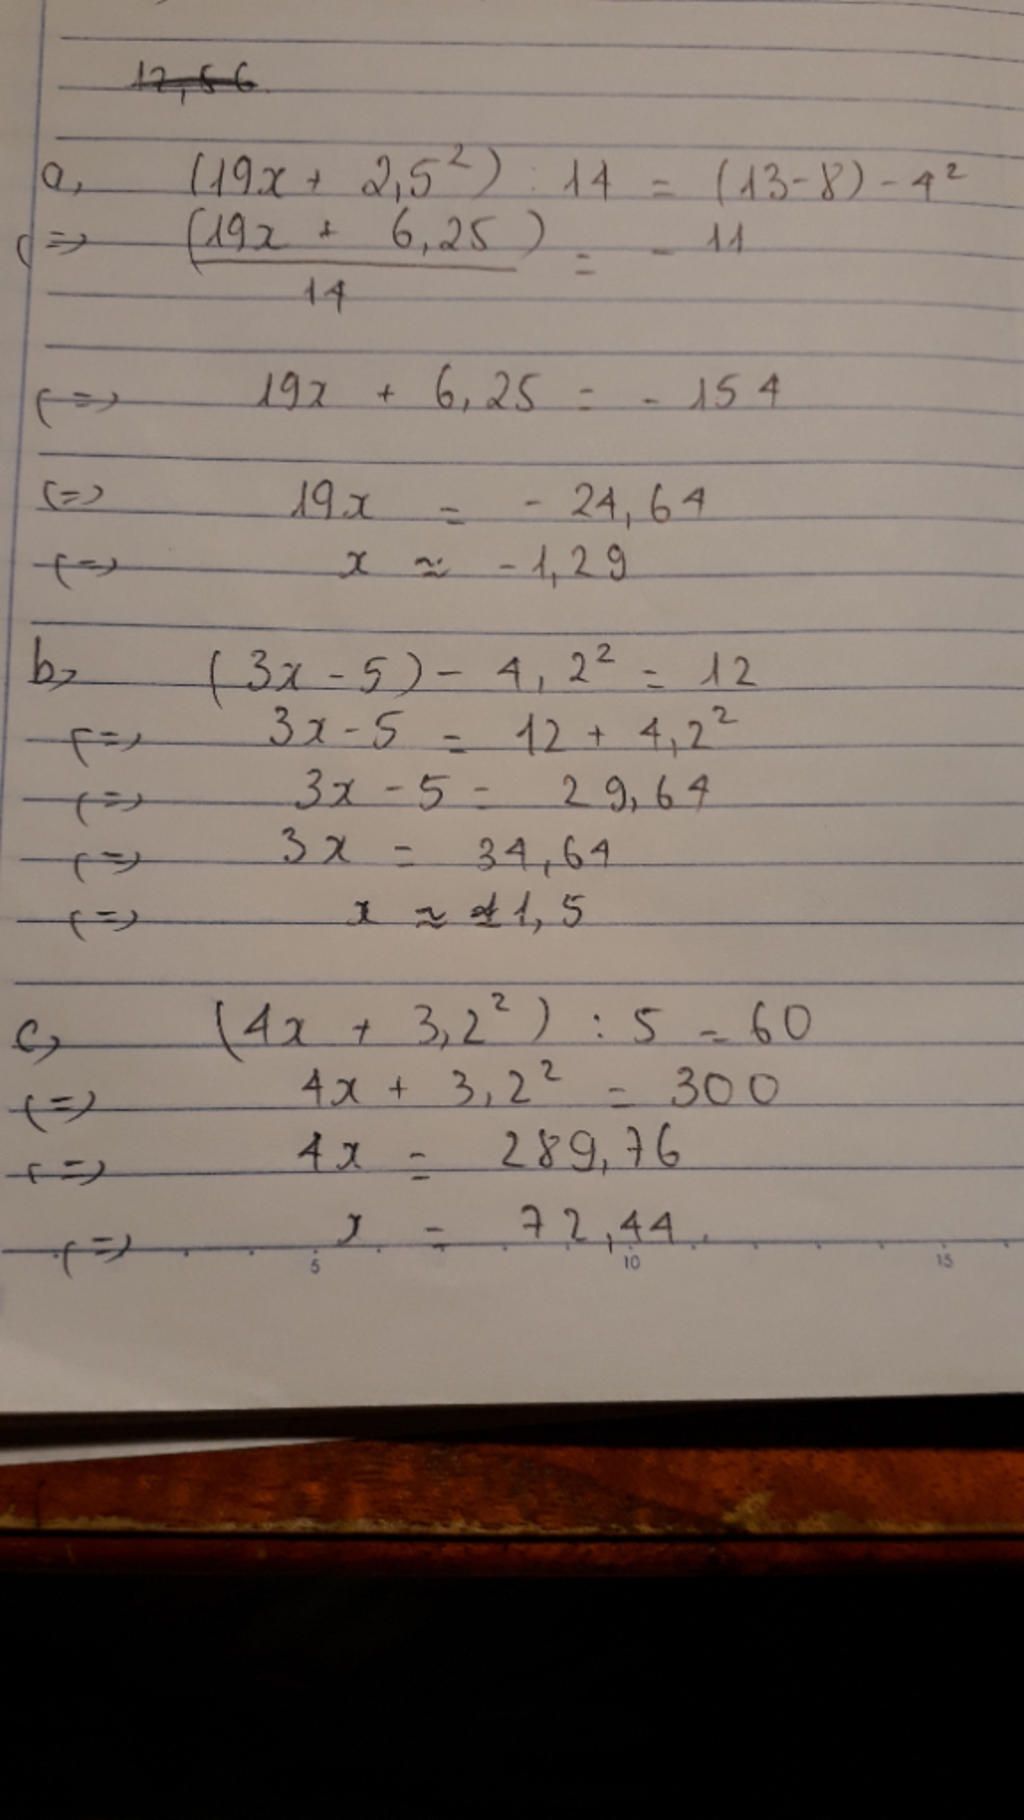 12,56
a, (19x + 2,5²) : 14 = (13-8) - 4²
(=) (19x + 6,25) / 14 = - 11
(=) 19x + 6,25 = - 154
(=) 19x = - 24,64
(=) x ≈ -1,29
b, (3x - 5) - 4,2² = 12
(=) 3x - 5 = 12 + 4,2²
(=) 3x - 5 = 29,64
(=) 3x = 34,64
(=) x ≈ 11,5
c, (4x + 3,2²) : 5 = 60
(=) 4x + 3,2² = 300
(=) 4x = 289,76
(=) x = 72,44.
5 10 15